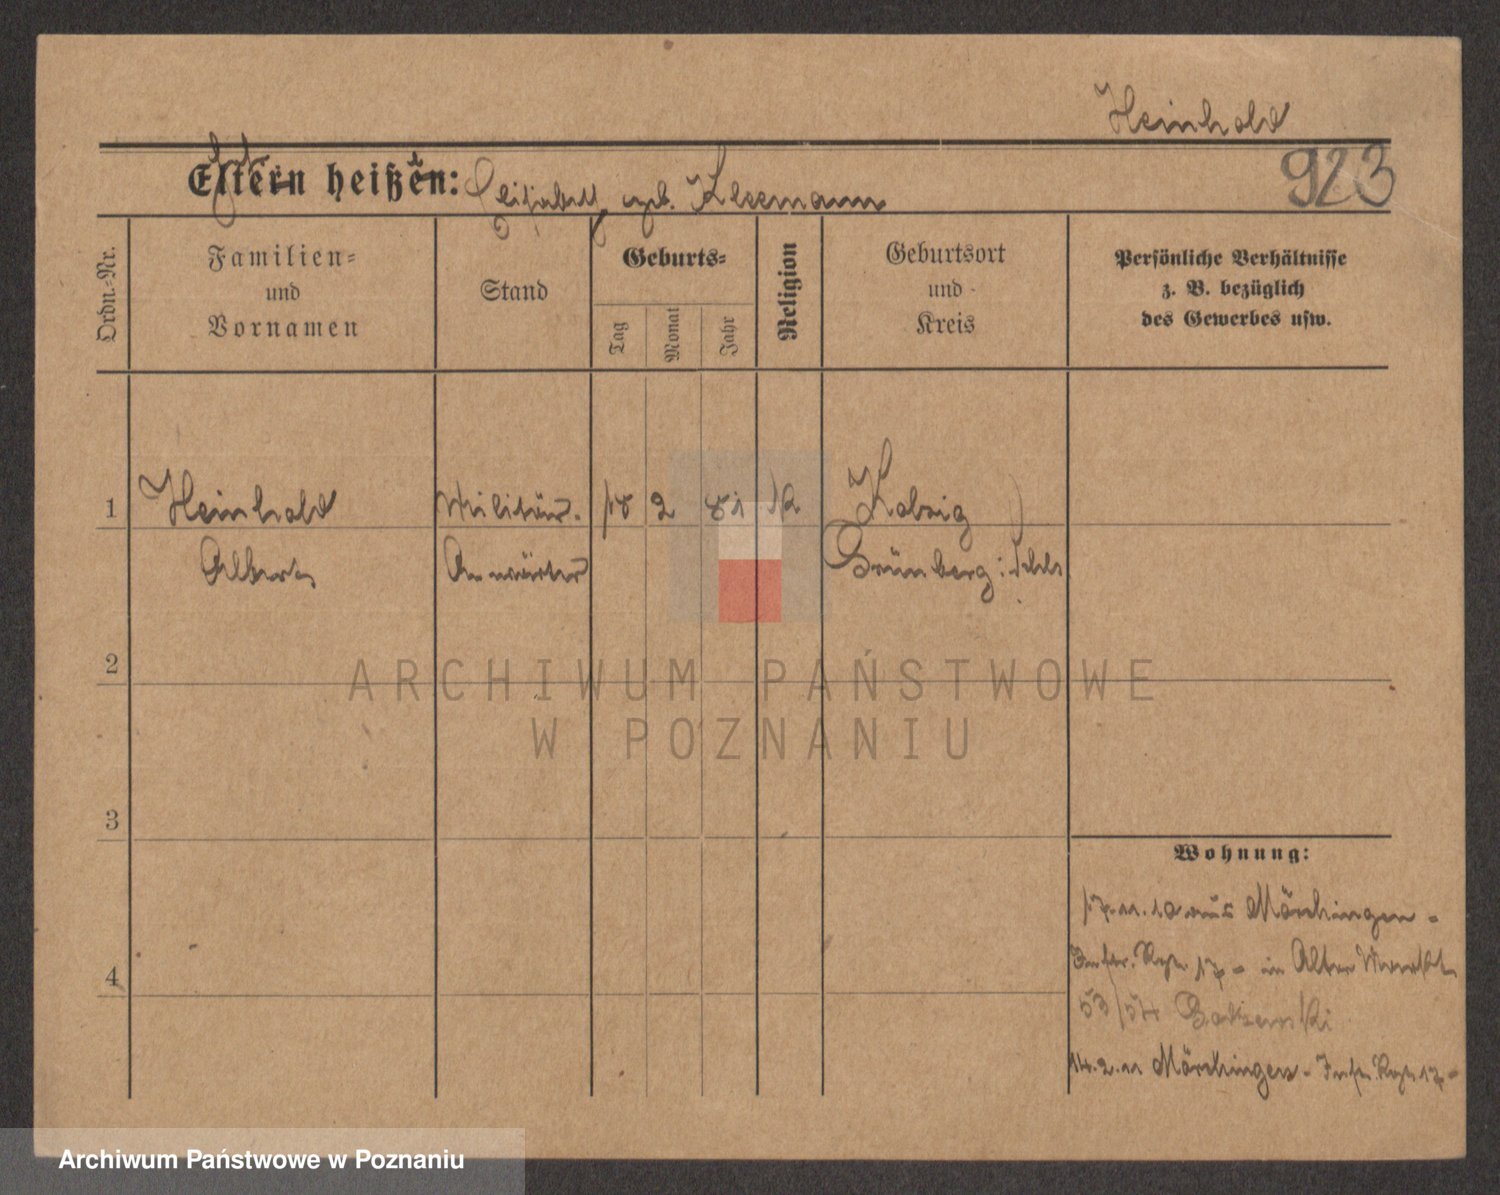 Heinhold
923
Eltern heißen:
Elisabeth geb. Kleemann
Ordn.-Nr.
Familien-
und
Vornamen
Stand
Geburts-
Tag
Monat
Jahr
Religion
Geburtsort
und
Kreis
Persönliche Verhältnisse
z. B. bezüglich
des Gewerbes usw.
1
Heinhold
Albert
Militär-
Anwärter
18
2
81
k
Kolzig
Grünberg i. Schls
2
3
4
Wohnung:
17.11.10 aus Mörchingen -
Inftr. Regt. 17 - in Alter Markt
53/54
14.2.11 Mörchingen - Inftr. Regt 17 -
ARCHIWUM PAŃSTWOWE
W POZNANIU
Archiwum Państwowe w Poznaniu